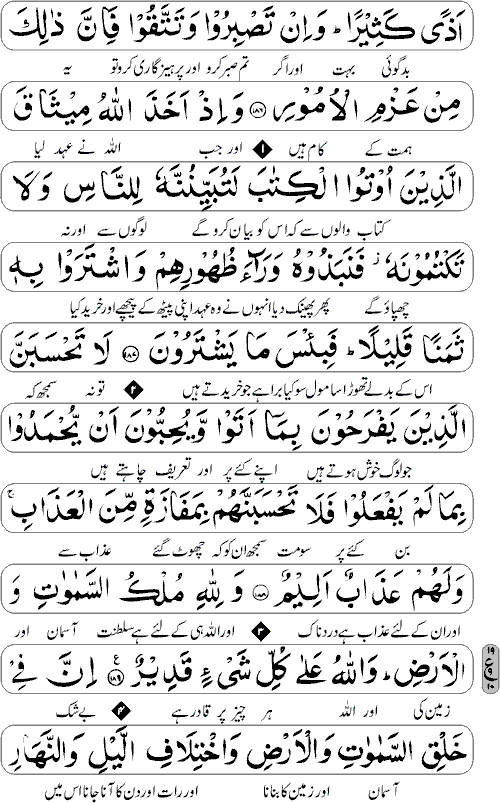 اَذًى كَثِيْرًا ؕ وَاِنْ تَصْبِرُوْا وَتَتَّقُوْا فَاِنَّ ذٰلِكَ
بدگوئی بہت اور اگر تم صبر کرو اور پرہیزگاری کرو تو یہ
مِنْ عَزْمِ الْاُمُوْرِ ۱۸۶ وَاِذْ اَخَذَ اللّٰهُ مِيْثَاقَ
ہمت کے کام ہیں ۱ اور جب اللہ نے عہد لیا
الَّذِيْنَ اُوْتُوا الْكِتٰبَ لَتُبَيِّنُنَّهٗ لِلنَّاسِ وَلَا
کتاب والوں سے کہ اس کو بیان کرو گے لوگوں سے اور نہ
تَكْتُمُوْنَهٗ ز فَنَبَذُوْهُ وَرَآءَ ظُهُوْرِهِمْ وَاشْتَرَوْا بِهٖ
چھپاؤ گے پھر پھینک دیا انہوں نے وہ عہد اپنی پیٹھ کے پیچھے اور خرید کیا
ثَمَنًا قَلِيْلًا ؕ فَبِئْسَ مَا يَشْتَرُوْنَ ۱۸۷ لَا تَحْسَبَنَّ
اس کے بدلے تھوڑا سا مول سو کیا برا ہے جو خریدتے ہیں ۲ تو نہ سمجھ کہ
الَّذِيْنَ يَفْرَحُوْنَ بِمَآ اَتَوْا وَّيُحِبُّوْنَ اَنْ يُّحْمَدُوْا
جو لوگ خوش ہوتے ہیں اپنے کئے پر اور تعریف چاہتے ہیں
بِمَا لَمْ يَفْعَلُوْا فَلَا تَحْسَبَنَّهُمْ بِمَفَازَةٍ مِّنَ الْعَذَابِ ۚ
بن کئے پر سو مت سمجھ ان کو کہ چھوٹ گئے عذاب سے
وَلَهُمْ عَذَابٌ اَلِيْمٌ ۱۸۸ وَلِلّٰهِ مُلْكُ السَّمٰوٰتِ وَ
اور ان کے لئے عذاب ہے دردناک ۳ اور اللہ ہی کے لئے ہے سلطنت آسمان اور
الْاَرْضِ ؕ وَاللّٰهُ عَلٰى كُلِّ شَىْءٍ قَدِيْرٌ ۱۸۹ ع اِنَّ فِىْ
زمین کی اور اللہ ہر چیز پر قادر ہے ۴ بے شک
خَلْقِ السَّمٰوٰتِ وَالْاَرْضِ وَاخْتِلَافِ الَّيْلِ وَالنَّهَارِ
آسمان اور زمین کا بنانا اور رات اور دن کا آنا جانا اس میں